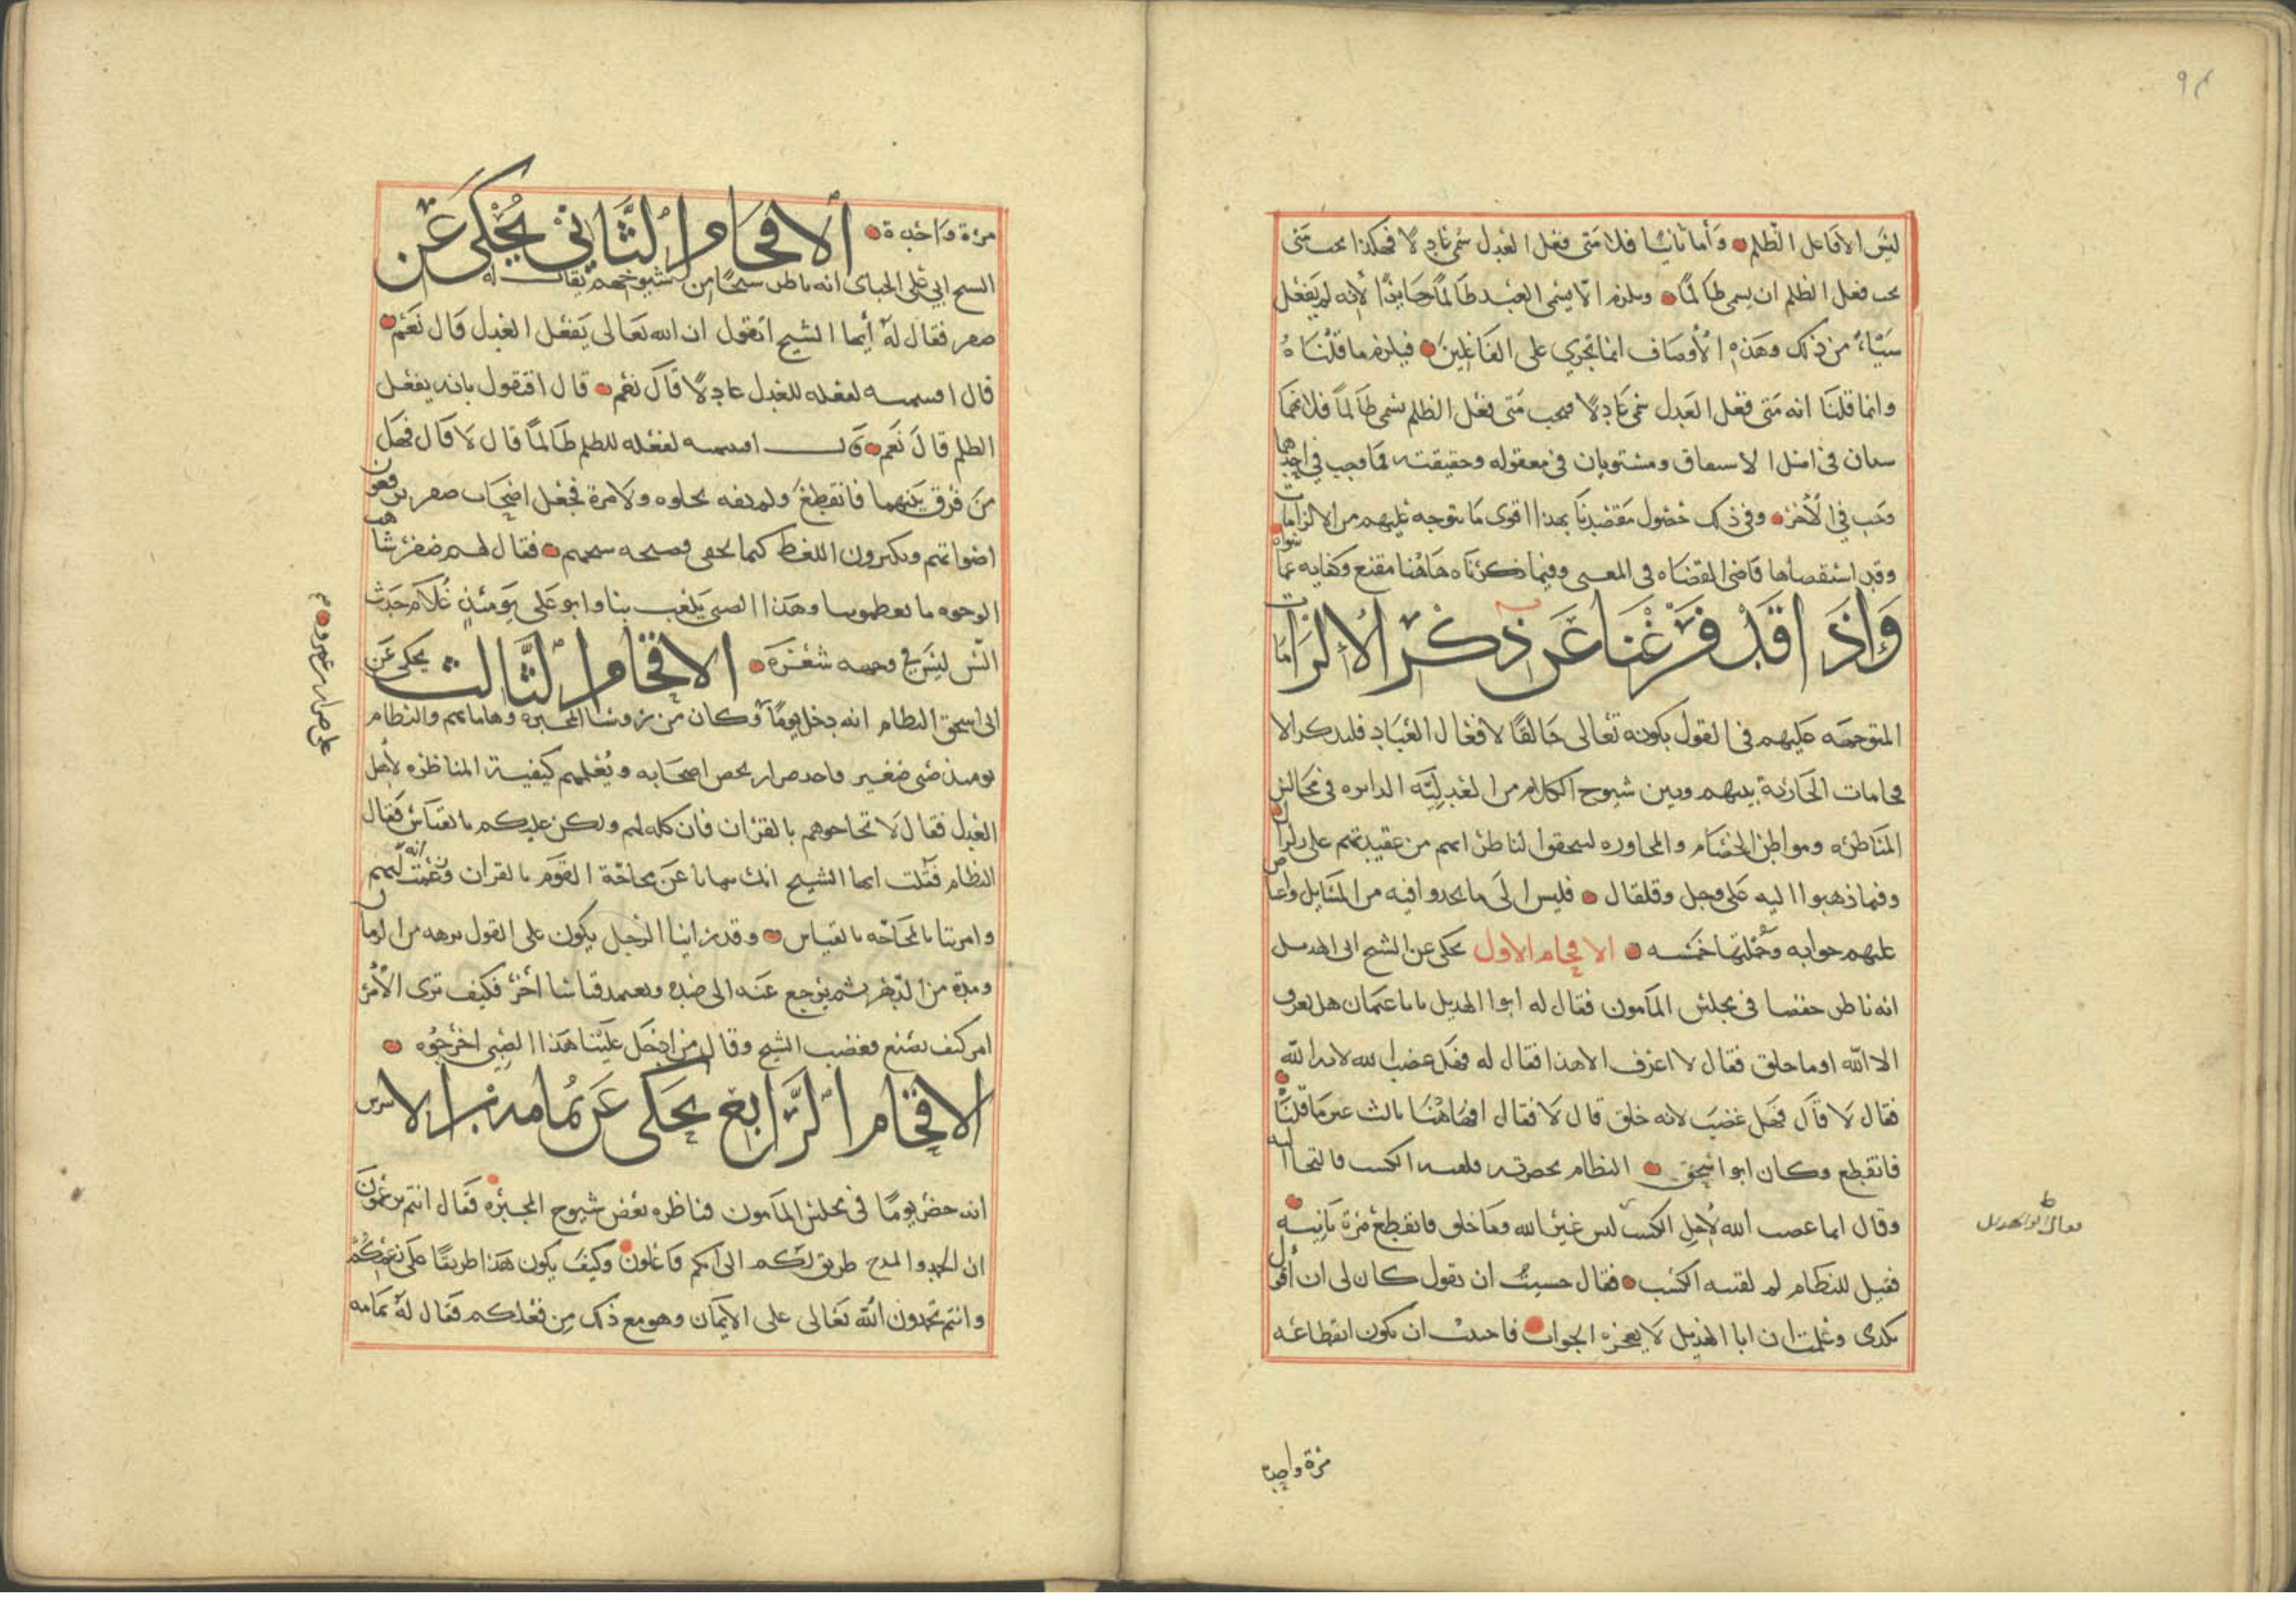 ليس الا فاعل الظلم وأما ثانيا فلانه متى فعل العدل سمي عادلا فهكذا يجب متى
يجب فعل الظلم ان يسمى ظالما ويلزم الا يسمى العبد ظالما جايرا لأنه لم يفعل
شيئا من ذلك وهذه الأوصاف انما تجري على الفاعلين فيلزم ما قلناه
وانما قلنا انه متى فعل العدل سمي عادلا فيجب متى فعل الظلم يسمى ظالما فلانهما
سيان في اصل الاشتقاق ومستويان في معقوله وحقيقته فما وجب في احدهما
وجب في الأخر وفي ذلك حصول مقصدنا بهذا اقوى ما يتوجه عليهم من الالزامات
وقد استقصاها قاضي القضاه في المغني وفيما ذكرناه هاهنا مقنع وكفايه عما سواه
وإذ قد فرغنا عن ذكر الإلزامات
المتوجهه عليهم في القول بكونه تعالى خالقا لافعال العباد فلنذكر الا
فحامات الجارية بينهم وبين شيوخ الكلام من العدلية الدايره في مجالس
المناظره ومواطن الخصام والمحاوره ليتحقق الناظر انهم من عقيدتهم على زلزال
وفيما ذهبوا اليه على وجل وقلقال فليس الى ما يجدوا فيه من المسايل واعتاص
عليهم جوابه وجملتها خمسه الافحام الاول يحكى عن الشيخ ابي الهذيل
انه ناظر حفصا في مجلس المأمون فقال له ابوا الهذيل يابا عثمان هل يعرف
الا الله او ما خلق فقال لا اعرف الا هذا فقال له فهل غضب الله لانه الله
فقال لا قال فهل غضب لانه خلق قال لا فقال افهاهنا ثالث غير ما قلنا
فانقطع وكان ابو اسحق النظام بحضرته فلقنه الكسب فالتجا اليه
وقال انما غضب الله لأجل الكسب ليس غير الله وما خلق فانقطع مرة ثانيه
فقيل للنظام لم لقنته الكسب فقال حسبت ان يقول كان لي ان أقول
كذى وعلمت ان ابا الهذيل لا يعجزه الجواب فاحببت ان يكون انقطاعه
مرة واحدة
مرة واحدة الافحام الثاني يحكى عن
الشيخ ابي علي الجباي انه ناظر شيخا من شيوخهم يقال له
صقر فقال له أيها الشيخ اتقول ان الله تعالى يفعل العدل قال نعم
قال افتسميه لفعله للعدل عادلا قال نعم قال افتقول بانه يفعل
الظلم قال نعم قال افتسميه لفعله للظلم ظالما قال لا قال فهل
من فرق بينهما فانقطع ولم يفه بحلوه ولا مرة فجعل اصحاب صقر يرفعون
اضواتهم ويكثرون اللغط كيما يخفى فضيحه شيخهم فقال لهم صقر شاهت
الوجوه ما تعظمونا وهذا الصبي يلعب بنا وابو علي يومئذ غلام حدث
السن ليس في وجهه شعرة الافحام الثالث يحكى عن
ابي اسحق النظام انه دخل يوما وكان من رؤسا المجبره والنظام
يومئذ صبي صغير فاخذ ضرار يحض اصحابه ويعلمهم كيفية المناظره لأهل
العدل فقال لا تحاجوهم بالقران فان كله لهم ولكن عليكم بالقياس فقال
النظام فقلت ايها الشيخ انك نهيتنا عن محاجة القوم بالقران وزعمت انه لهم
وامرتنا بالمحاجه بالقياس وقد راينا الرجل يكون على القول برهه من الزمان
ومدة من الدهر ثم يرجع عنه الى ضده ويعتمد قياسا أخر فكيف ترى الأمر
ام كيف نصنع فغضب الشيخ وقال من ادخل علينا هذا الصبي اخرجوه
الافحام الرابع يحكى عن ثمامه بن الاشرس
انه حضر يوما في مجلس المأمون فناظره بعض شيوخ المجبره فقال انتم تزعمون
ان الحمد والمدح طريق لكم الى انكم فاعلون وكيف يكون هذا طريقا على زعمكم
وانتم تحمدون الله تعالى على الايمان وهو مع ذلك من فعلكم فقال له ثمامه